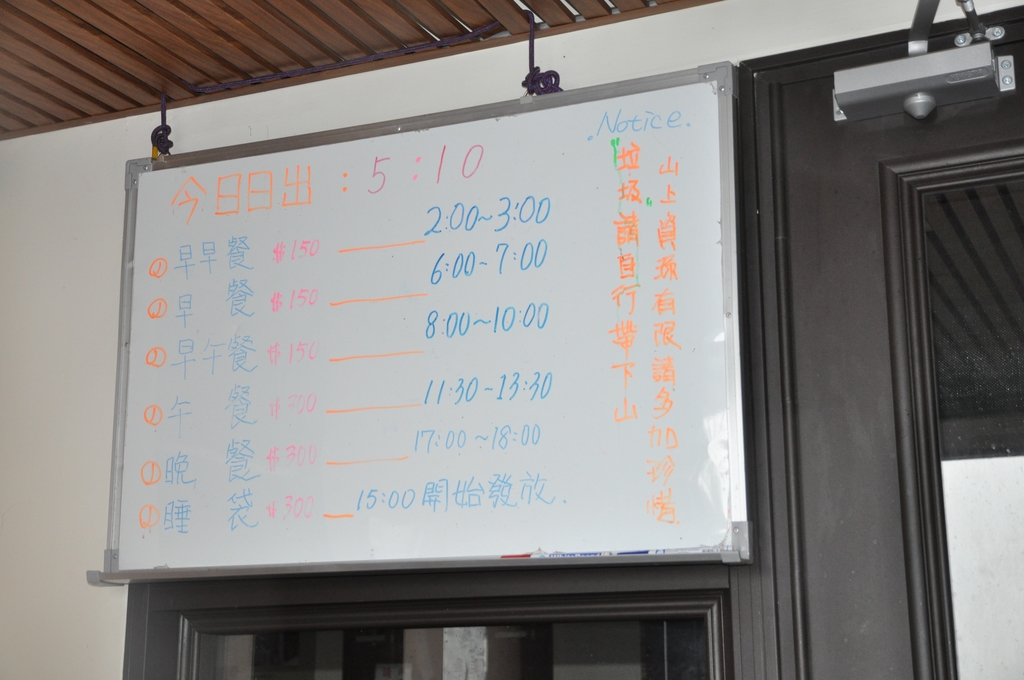 今日日出：5：10
早早餐 $150 2:00~3:00
早 餐 $150 6:00~7:00
早午餐 $150 8:00~10:00
午 餐 $300 11:30~13:30
晚 餐 $300 17:00~18:00
睡 袋 $300 15:00開始發放.
.Notice.
山上資源有限請多加珍惜.
"垃圾"請自行帶下山